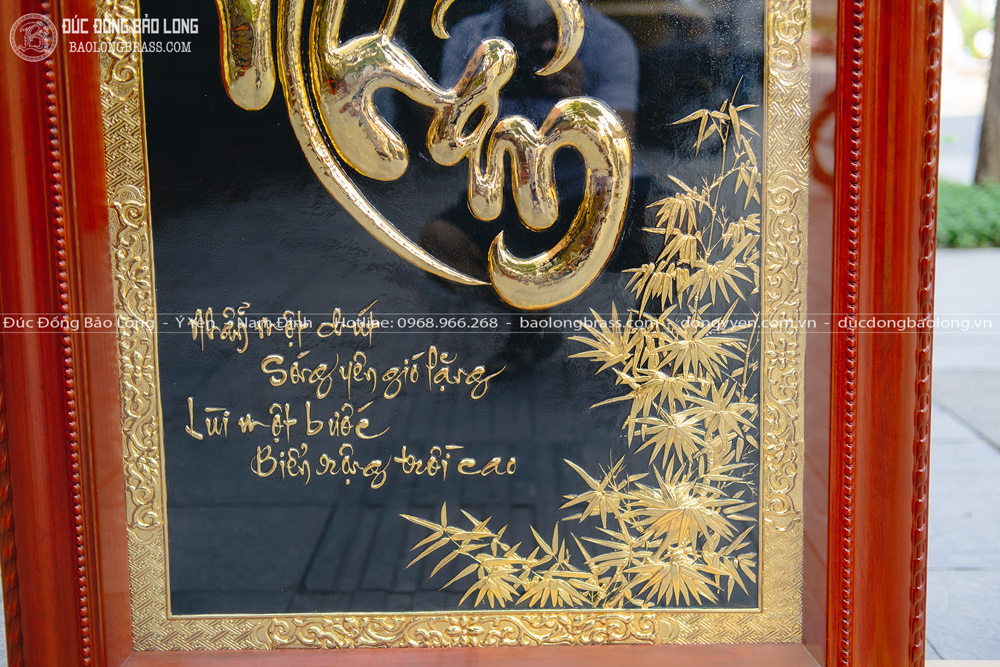 ĐÚC ĐỒNG BẢO LONG
BAOLONGBRASS.COM
Nhẫn
Nhẫn một chút
Sóng yên gió lặng
Lùi một bước
Biển rộng trời cao
Đúc Đồng Bảo Long - Ý Yên - Nam Định - Hotline: 0968.966.268 - baolongbrass.com - dongyyen.com.vn - ducdongbaolong.vn